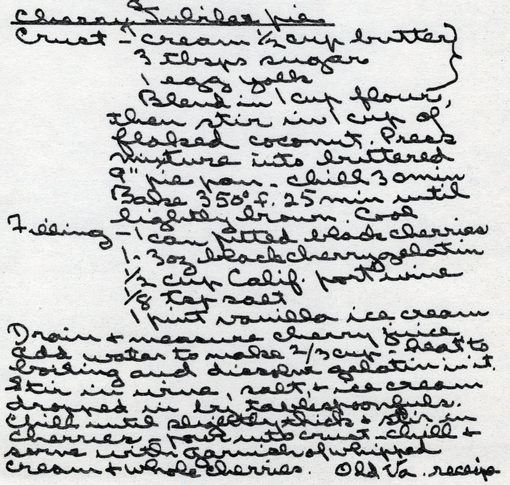 Cherry Jubilee pie
Crust - cream 1/2 cup butter
3 tbsps sugar
1 egg yolk
Blend in 1 cup flour,
then stir in 1 cup of
flaked coconut. Press
mixture into buttered
9" pie pan - chill 30 min
Bake 350° f. 25 min until
lightly brown. Cool
Filling - 1 can pitted black cherries
1 - 3oz black cherry gelatin
1/2 cup Calif. port wine
1/8 tsp salt
1 pint vanilla ice cream
Drain & measure cherry juice
add water to make 2/3 cup - heat to
boiling and dissolve gelatin in it.
Stir in wine, salt, & ice cream
dropped in by tablespoonfuls.
Chill until slightly thick & stir in
cherries & pour into crust - chill &
serve with garnish of whipped
cream & whole cherries. Old Va. receipe